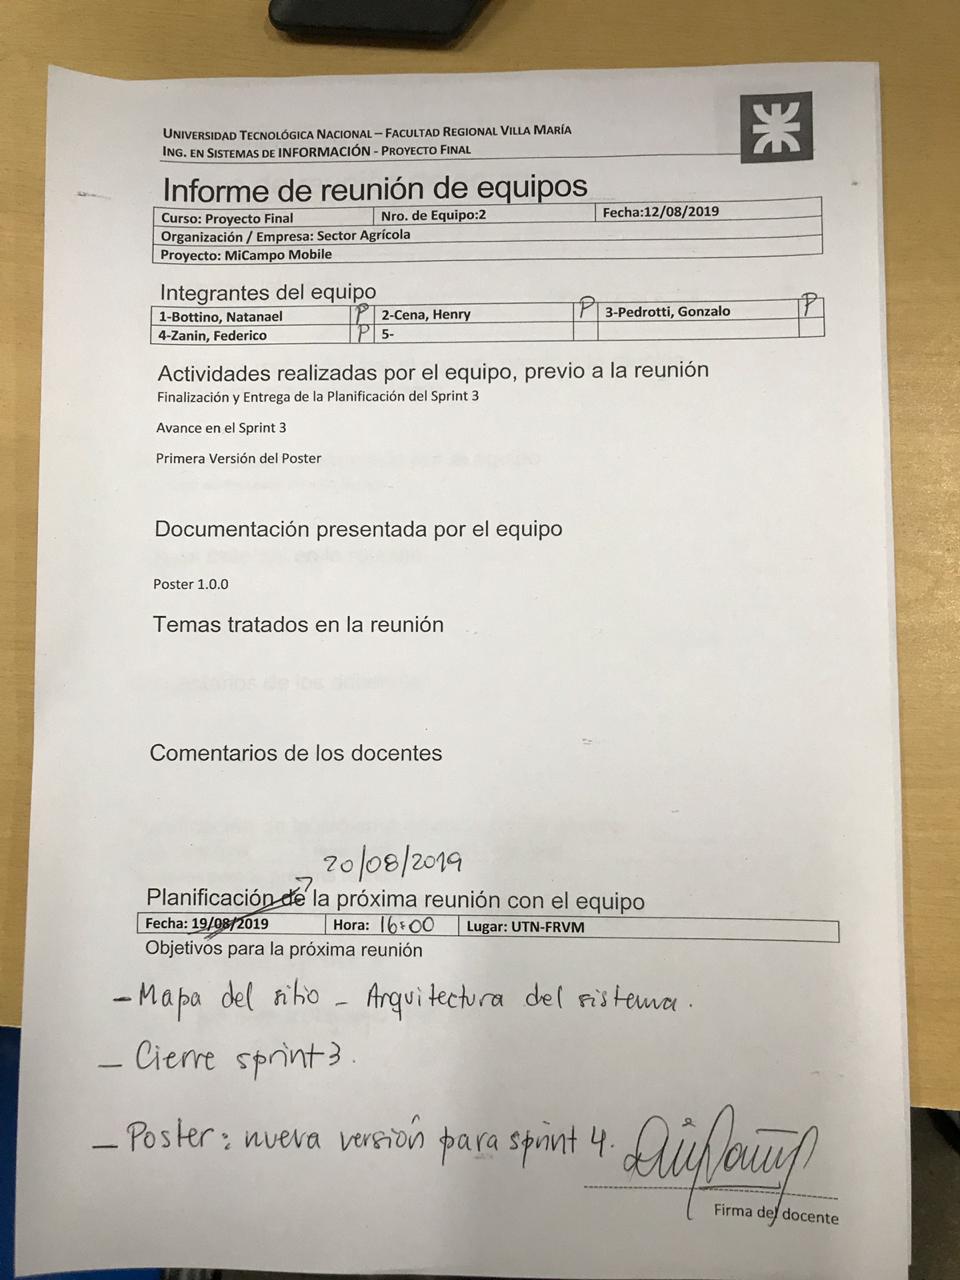 UNIVERSIDAD TECNOLÓGICA NACIONAL – FACULTAD REGIONAL VILLA MARÍA
ING. EN SISTEMAS DE INFORMACIÓN - PROYECTO FINAL
Informe de reunión de equipos
Curso: Proyecto Final Nro. de Equipo:2 Fecha:12/08/2019
Organización / Empresa: Sector Agrícola
Proyecto: MiCampo Mobile
Integrantes del equipo
1-Bottino, Natanael P 2-Cena, Henry P 3-Pedrotti, Gonzalo P
4-Zanin, Federico P 5-
Actividades realizadas por el equipo, previo a la reunión
Finalización y Entrega de la Planificación del Sprint 3
Avance en el Sprint 3
Primera Versión del Poster
Documentación presentada por el equipo
Poster 1.0.0
Temas tratados en la reunión
Comentarios de los docentes
20/08/2019
Planificación de la próxima reunión con el equipo
Fecha: 19/08/2019 Hora: 16:00 Lugar: UTN-FRVM
Objetivos para la próxima reunión
- Mapa del sitio - Arquitectura del sistema.
- Cierre sprint 3.
- Poster: nueva versión para sprint 4.
Firma del docente